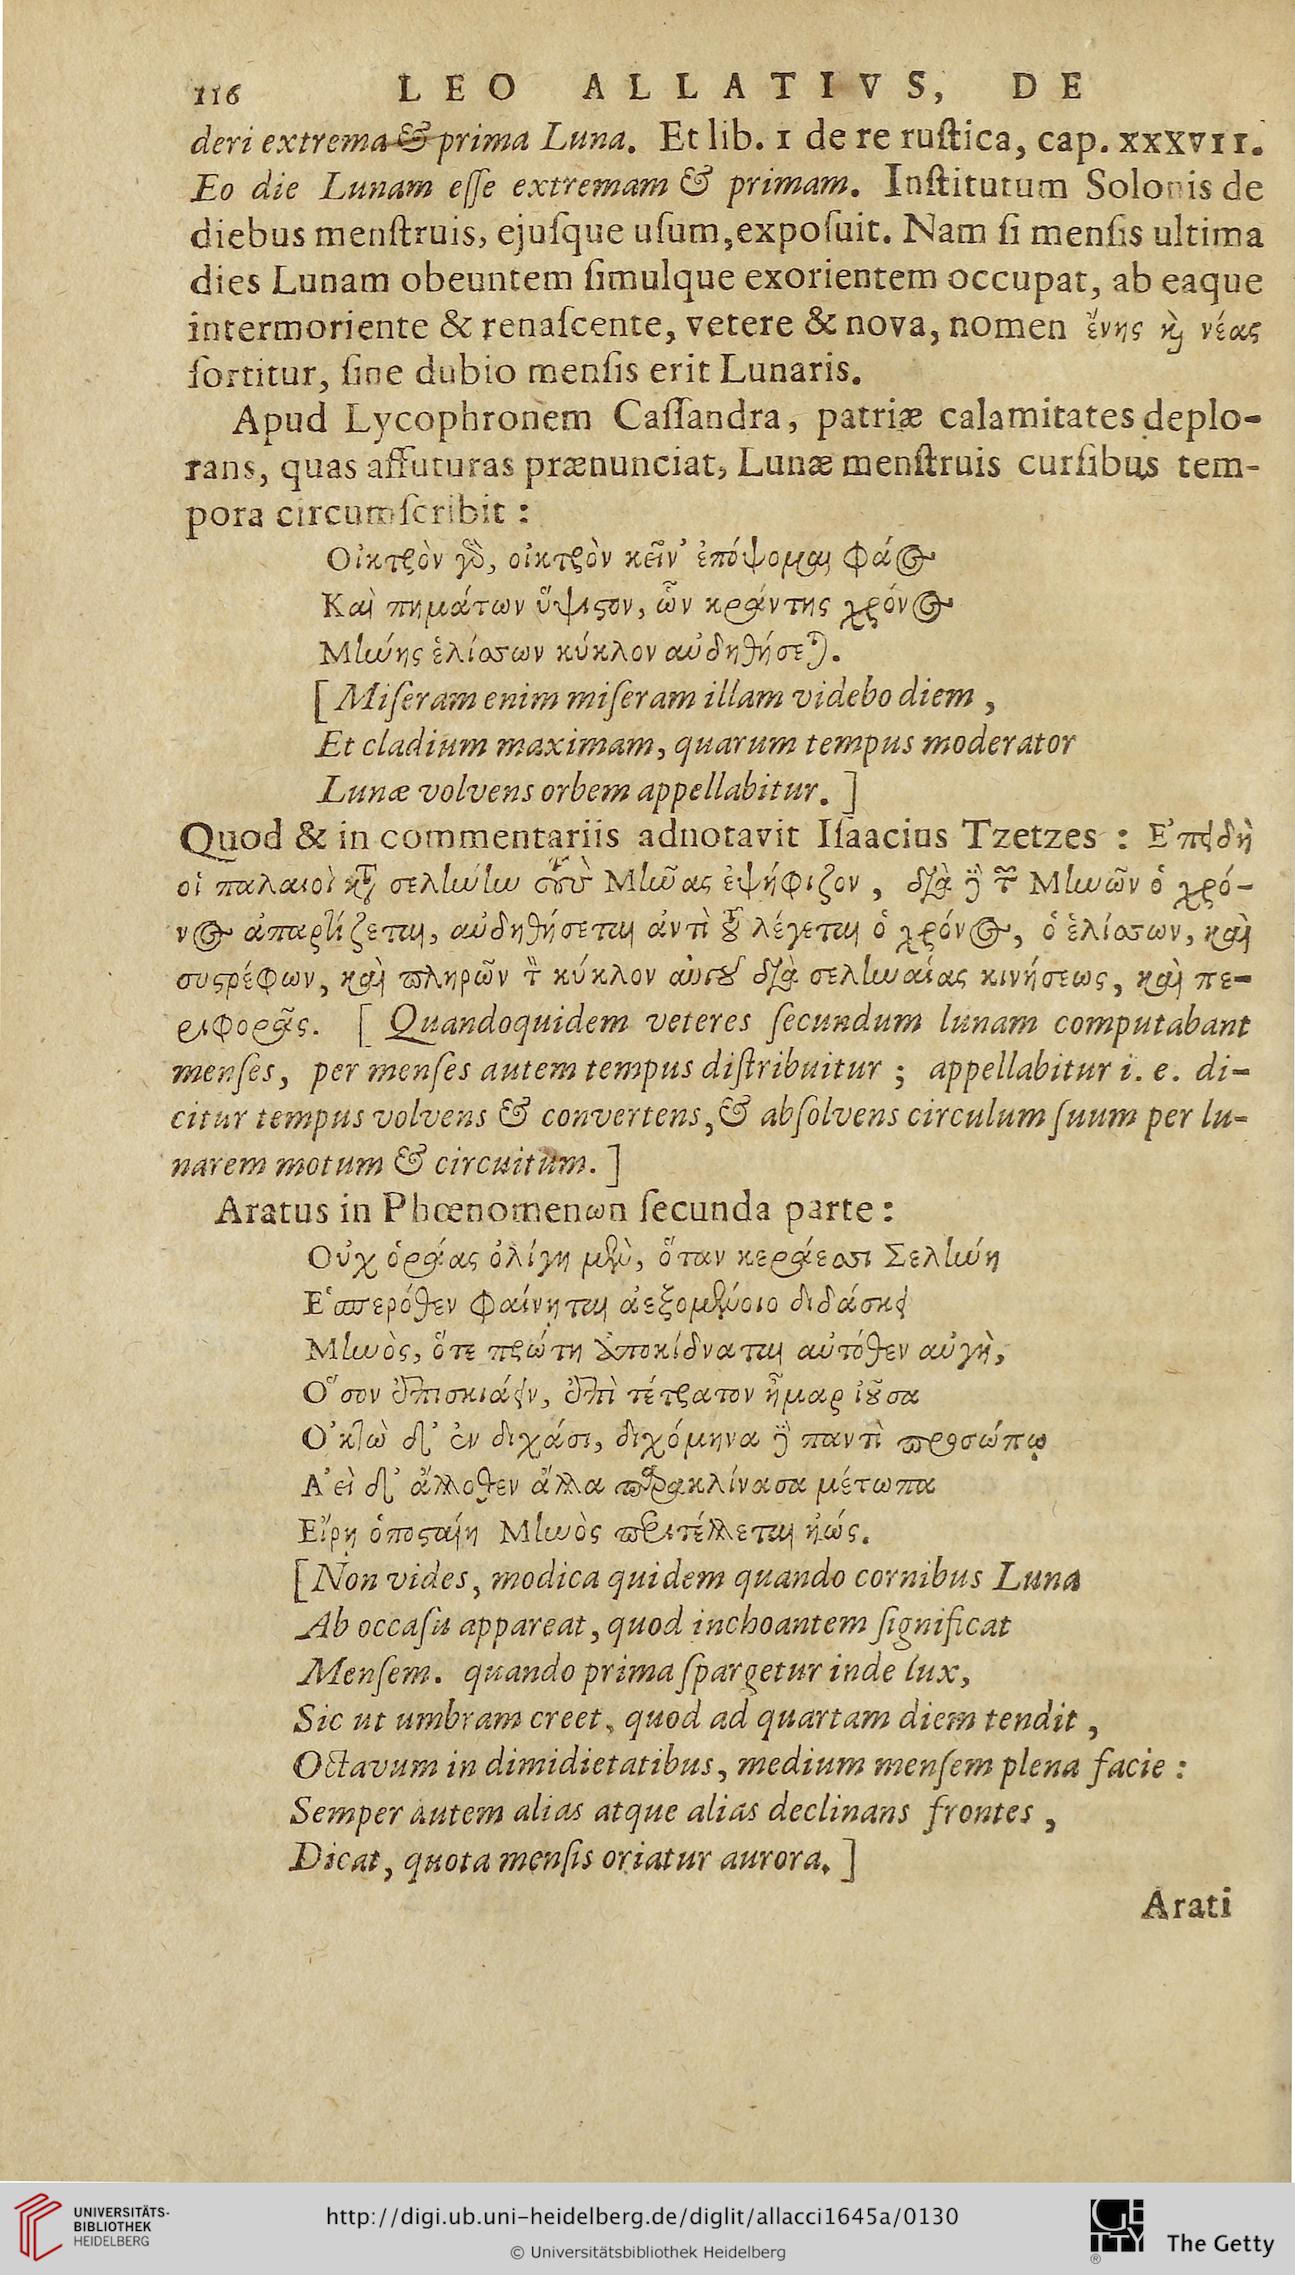 116 LEO ALLATIVS, DE
deri extrema & prima Luna. Et lib. 1 de re ruſtica, cap. XXXVII.
Eo die Lunam eſſe extremam & primam. Inſtitutum Solonis de
diebus menſtruis, ejuſque uſum, expoſuit. Nam ſi menſis ultima
dies Lunam obeuntem ſimulque exorientem occupat, ab eaque
intermoriente & renaſcente, vetere & nova, nomen ἔνης κỳ νέας
ſortitur, ſine dubio menſis erit Lunaris.
Apud Lycophronem Caſſandra, patriæ calamitates deplo-
rans, quas affuturas prænunciat, Lunæ menſtruis curſibus tem-
pora circumſcribit :
Οἰκτρὸν γὸ, οἰκτρὸν κεῖν' ἐπόψομαι φάος
Καὶ πημάτων ὕψιςον, ὧν κράντης χρόνος
Μlώης ἑλίασων κύκλον αὐδηθήσεται.
[ Miſeram enim miſeram illam videbo diem ,
Et cladium maximam, quarum tempus moderator
Lunæ volvens orbem appellabitur. ]
Quod & in commentariis adnotavit Iſaacius Tzetzes : Ἐπειδὴ
οἱ παλαιοὶ κτ σελήνην τοὺς Μῆνας ἐψήφιζον , διὰ δὲ τ Μηνῶν ὁ χρό-
νος ἀπαρτίζεται, αὐδηθήσεται ἀντὶ τοῦ λέγεται ὁ χρόνος, ὁ ἑλίασων, καὶ
συςρέφων, καὶ πληρῶν τ κύκλον αὐτοῦ διὰ σεληναίας κινήσεως, καὶ πε-
ριφορᾶς. [ Quandoquidem veteres ſecundum lunam computabant
menſes, per menſes autem tempus diſtribuitur ; appellabitur i. e. di-
citur tempus volvens & convertens, & abſolvens circulum ſuum per lu-
narem motum & circuitum. ]
Aratus in Phœnomenωn ſecunda parte :
Οὐχ ὁράας ὀλίγη μὲν, ὅταν κεράεσσι Σελήνη
Ἑσπερόθεν φαίνηται ἀεξομένοιο διδάσκει
Μηνὸς, ὅτε πρώτη ἀποκίδναται αὐτόθεν αὐγὴ,
Ὅσον ἐπισκιάειν, ἐπὶ τέτρατον ἦμαρ ἰοῦσα
Ὀκτὼ δ' ἐν διχάσι, διχόμηνα δὲ παντὶ προσώπῳ
Ἀεὶ δ' ἄλλοθεν ἄλλα παρακλίνασα μέτωπα
Εἴρη ὁποςαίη Μηνὸς περιτέλλεται ἠώς.
[ Non vides, modica quidem quando cornibus Luna
Ab occaſu appareat, quod inchoantem ſignificat
Menſem. quando prima ſpargetur inde lux,
Sic ut umbram creet, quod ad quartam diem tendit ,
Octavum in dimidietatibus, medium menſem plena facie :
Semper autem alias atque alias declinans frontes ,
Dicat, quota menſis oriatur aurora. ]
Arati
UNIVERSITÄTS-
BIBLIOTHEK
HEIDELBERG
http://digi.ub.uni-heidelberg.de/diglit/allacci1645a/0130
© Universitätsbibliothek Heidelberg
The Getty